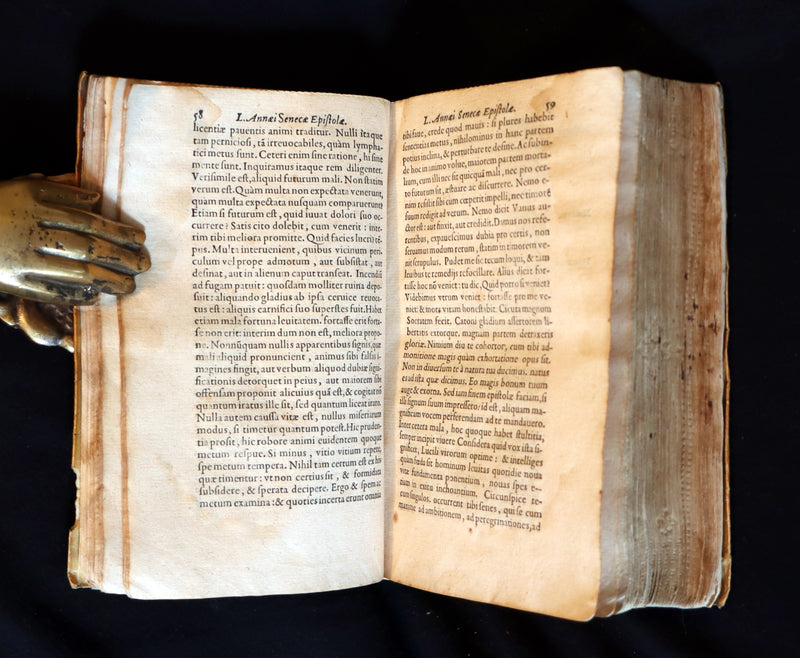 58 L. Annæi Senecæ Epistolæ.
licentiæ pauentis animi traditur. Nulli itaque
tam perniciosi, tã irreuocabiles, quàm lympha-
tici metus sunt. Ceteri enim sine ratione, hi sine
mente sunt. Inquiramus itaque rem diligenter.
Verisimile est, aliquid futurum mali. Non statim
verum est. Quàm multa non expectata venerunt,
quàm multa expectata nusquam comparuerunt?
Etiam si futurum est, quid iuuat dolori suo oc-
currere? Satis cito dolebit, cum venerit: inte-
rim tibi meliora promitte. Quid facies lucri? tẽ-
pus. Multa interuenient, quibus vicinum peri-
culum vel prope admotum, aut subsistat, aut
desinat, aut in alienum caput transeat. Incendiũ
ad fugam patuit: quosdam molliter ruina depo-
suit: aliquando gladius ab ipsa ceruice reuoca-
tus est: aliquis carnifici suo superstes fuit. Habet
etiam mala fortuna leuitatem. fortasse erit fortas-
se non erit: interim dum non est, meliora propo-
ne. Nonnũquam nullis apparentibus signis, quæ
mali aliquid pronuncient, animus sibi falsas i-
magines fingit, aut verbum aliquod dubiæ signi-
ficationis detorquet in peius, aut maiorem sibi
offensam proponit alicuius quã est, & cogitat nõ
quantum iratus ille sit, sed quantum liceat irato.
Nulla autem caussa vitæ est, nullus miseriarum
modus, si timetur quantum potest. Hic pruden-
tia prosit, hic robore animi euidentem quoque
metum respue. Si minus, vitio vitium repelle,
spe metum tempera. Nihil tam certum est ex his
quæ timentur: vt non certius sit, & formidata
subsidere, & sperata decipere. Ergo & spem ac
metum examina: & quoties incerta erunt omnia
L. Annæi Senecæ Epistolæ. 59
tibi faue, crede quod mauis: si plures habebit
sententias metus, nihilominus in hanc partem
potius inclina, & perturbare te desine. Ac subin-
de hoc in animo volue, maiorem partem morta-
lium, cum illi nec sit quicquã mali, nec pro cer-
to futurum sit, æstuare ac discurrere. Nemo e-
nim resistit sibi cum cœperit impelli, nec timorẽ
suum redigit ad verum. Nemo dicit Vanus au-
ctor est: aut finxit, aut credidit. Damus nos refe-
rentibus, expauescimus dubia pro certis, non
seruamus modum rerum, statim in timorem ve-
nit scrupulus. Pudet me sic tecum loqui, & tam
leuibus te remedijs refocillare. Alius dicit for-
tasse hoc nõ veniet: tu dic, Quid porro si veniet?
Videbimus vtrum veniet: fortasse pro me ve-
nit: & mors vitam honestabit. Cicuta magnum
Socratem fecit. Catoni gladium assertorem li-
bertatis extorque. magnam partem detraxeris
gloriæ. Nimium diu te cohortor, cum tibi ad-
monitione magis quàm exhortatione opus sit.
Non in diuersum te à natura tua ducimus. natus
es ad ista quæ dicimus. Eo magis bonum tuum
auge & exorna. Sed iam finem epistolæ faciam, si
illi signum suum impressero: id est, aliquam ma-
gnificam vocem perferendam ad te mandauero.
Inter cetera mala, hoc quoque habet stultitia,
semper incipit viuere Considera quid vox ista si-
gnificet, Lucili virorum optime: & intelliges
quàm fœda sit hominum leuitas quotidie noua
vitæ fundamenta ponentium, nouas spes e-
tiam in exitu inchoantium. Circunspice te-
cum singulos. occurrent tibi senes, qui se cum
maxime ad ambitionem, ad peregrinationes, ad